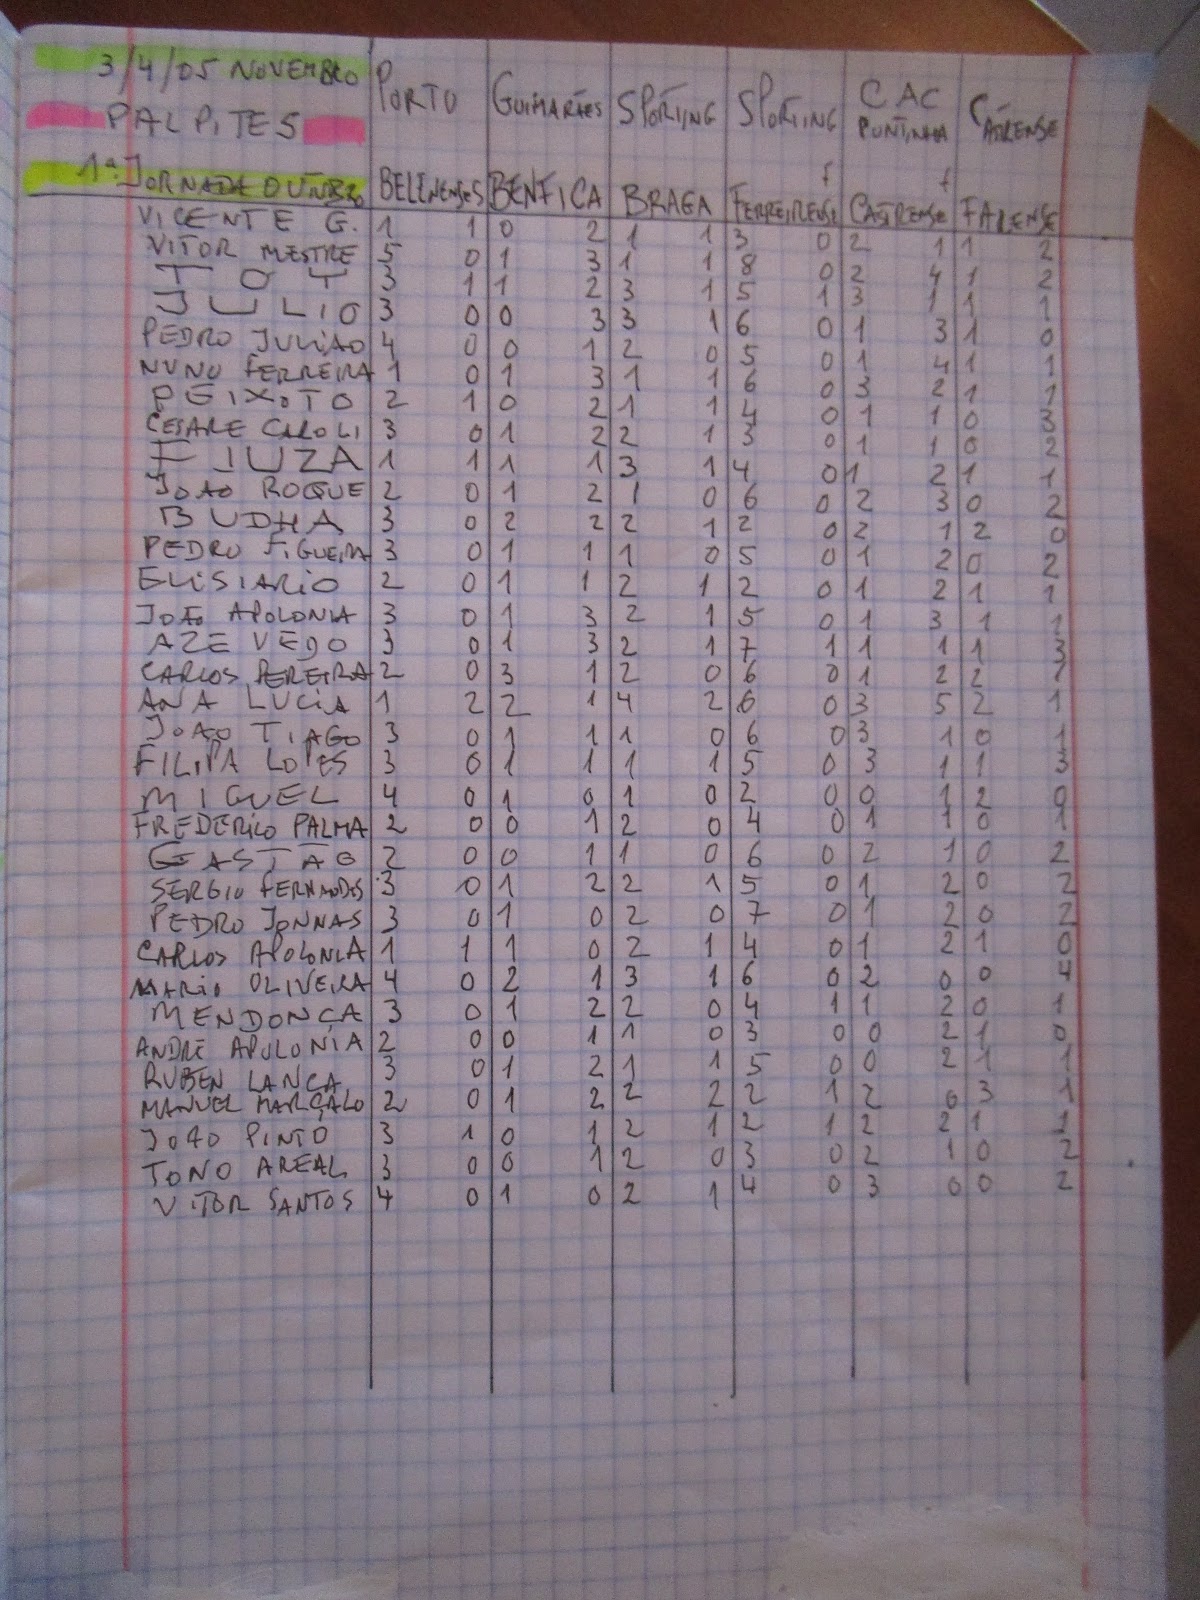 3/4/05 NOVEMBRO PORTO GUIMARÃES SPORTING SPORTING CAC PONTINHA CASTRENSE
PALPITES
1ª JORNADA OUTUBRO BELENENSES BENFICA BRAGA FERREIRENSE f CASTRENSE f FARENSE
VICENTE G. 1 1 0 2 1 1 3 0 2 1 1 2
VITOR MESTRE 5 0 1 3 1 1 8 0 2 4 1 2
TOY 3 1 1 2 3 1 5 1 3 1 1 1
JULIO 3 0 0 3 3 1 6 0 1 3 1 0
PEDRO JULIÃO 4 0 0 1 2 0 5 0 1 4 1 1
NUNO FERREIRA 1 0 1 3 1 1 6 0 3 2 1 1
PEIXOTO 2 1 0 2 1 1 4 0 1 1 0 3
CESARE CAROLI 3 0 1 2 2 1 3 0 1 1 0 2
FIUZA 1 1 1 1 3 1 4 0 1 2 1 1
JOÃO ROQUE 2 0 1 2 1 0 6 0 2 3 0 2
BUDHA 3 0 2 2 2 1 2 0 2 1 2 0
PEDRO FIGUEIRA 3 0 1 1 1 0 5 0 1 2 0 2
ELISIARIO 2 0 1 1 2 1 2 0 1 2 1 1
JOÃO APOLONIA 3 0 1 3 2 1 5 0 1 3 1 1
AZEVEDO 3 0 1 3 2 1 7 1 1 1 1 3
CARLOS PEREIRA 2 0 3 1 2 0 6 0 1 2 2 1
ANA LUCIA 1 2 2 1 4 2 6 0 3 5 2 1
JOÃO TIAGO 3 0 1 1 1 0 6 0 3 1 0 1
FILIPA LOPES 3 0 1 1 1 1 5 0 3 1 1 3
MIGUEL 4 0 1 0 1 0 2 0 0 1 2 0
FREDERICO PALMA 2 0 0 1 2 0 4 0 1 1 0 1
GASTÃO 2 0 0 1 1 0 6 0 2 1 0 2
SERGIO FERNANDES 3 0 1 2 2 1 5 0 1 2 0 2
PEDRO JONNAS 3 0 1 0 2 0 7 0 1 2 0 2
CARLOS APOLONIA 1 1 1 0 2 1 4 0 1 2 1 0
MARIO OLIVEIRA 4 0 2 1 3 1 6 0 2 0 0 4
MENDONÇA 3 0 1 2 2 0 4 1 1 2 0 1
ANDRÉ APOLONIA 2 0 0 1 1 0 3 0 0 2 1 0
RUBEN LANÇA 3 0 1 2 1 1 5 0 0 2 1 1
MANUEL MARÇALO 2 0 1 2 2 2 2 1 2 0 3 1
JOÃO PINTO 3 1 0 1 2 1 2 1 2 2 1 1
TONO AREAL 3 0 0 1 2 0 3 0 2 1 0 2
VITOR SANTOS 4 0 1 0 2 1 4 0 3 0 0 2